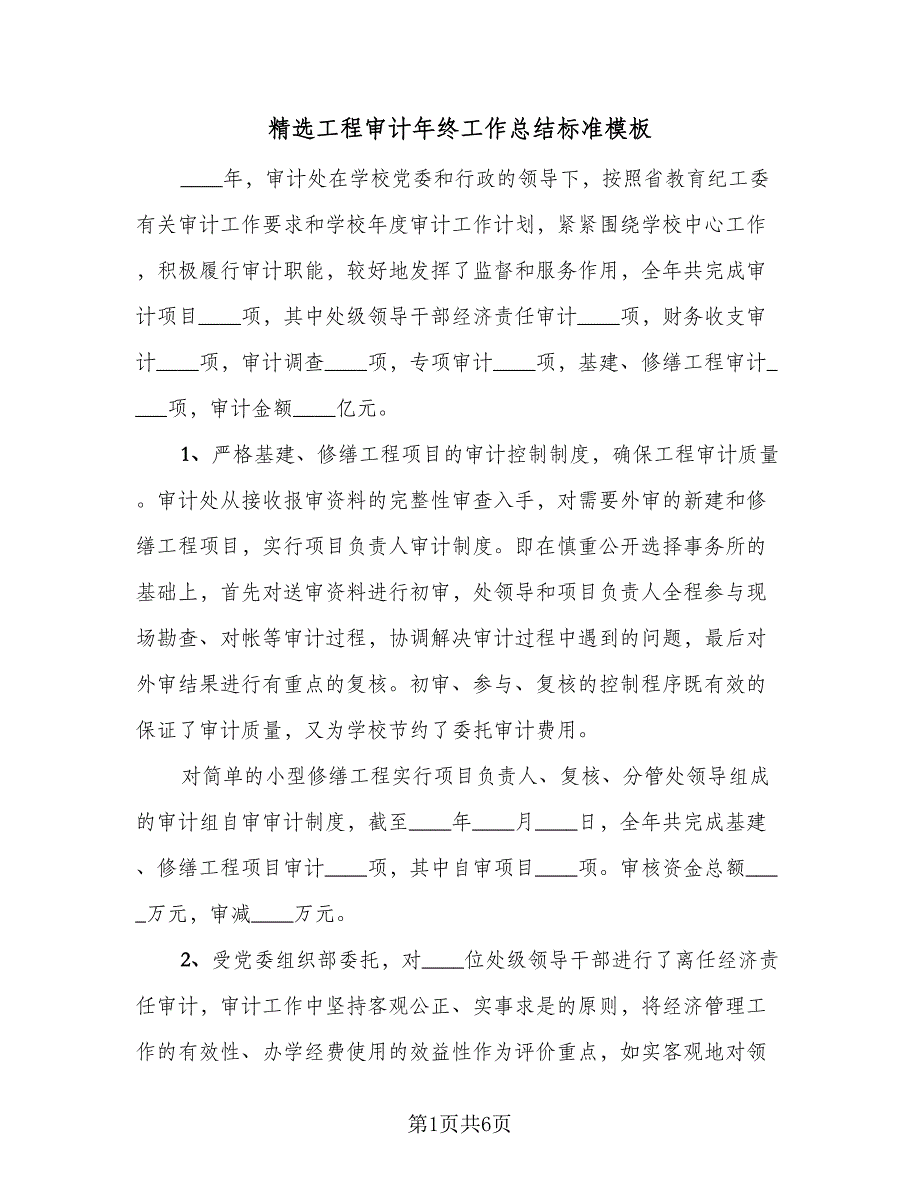 精选工程审计年终工作总结标准模板
____年，审计处在学校党委和行政的领导下，按照省教育纪工委
有关审计工作要求和学校年度审计工作计划，紧紧围绕学校中心工作
，积极履行审计职能，较好地发挥了监督和服务作用，全年共完成审
计项目____项，其中处级领导干部经济责任审计____项，财务收支审
计____项，审计调查____项，专项审计____项，基建、修缮工程审计_
___项，审计金额____亿元。
1、严格基建、修缮工程项目的审计控制制度，确保工程审计质量
。审计处从接收报审资料的完整性审查入手，对需要外审的新建和修
缮工程项目，实行项目负责人审计制度。即在慎重公开选择事务所的
基础上，首先对送审资料进行初审，处领导和项目负责人全程参与现
场勘查、对帐等审计过程，协调解决审计过程中遇到的问题，最后对
外审结果进行有重点的复核。初审、参与、复核的控制程序既有效的
保证了审计质量，又为学校节约了委托审计费用。
对简单的小型修缮工程实行项目负责人、复核、分管处领导组成
的审计组自审审计制度，截至____年____月____日，全年共完成基建
、修缮工程项目审计____项，其中自审项目____项。审核资金总额___
_万元，审减____万元。
2、受党委组织部委托，对____位处级领导干部进行了离任经济责
任审计，审计工作中坚持客观公正、实事求是的原则，将经济管理工
作的有效性、办学经费使用的效益性作为评价重点，如实客观地对领
第1页共6页